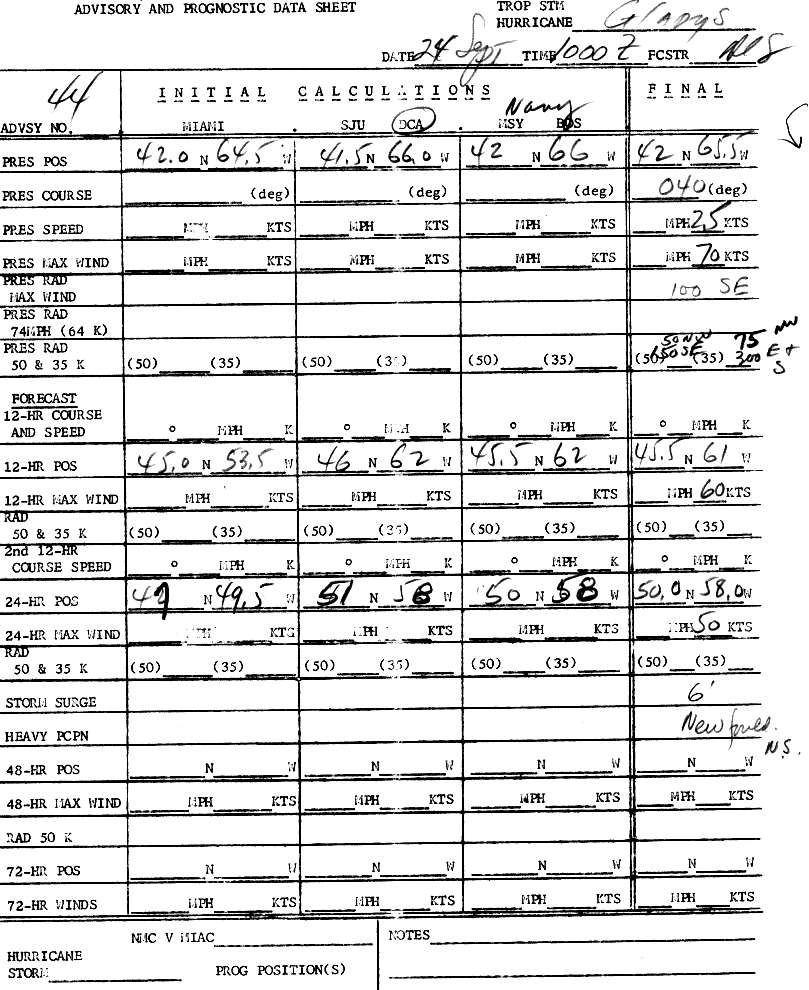 ADVISORY AND PROGNOSTIC DATA SHEET
TROP STM
HURRICANE Gladys
DATE 24 Sept TIME 1000 Z FCSTR
44 INITIAL CALCULATIONS FINAL
Navy
ADVSY NO. MIAMI . SJU DCA . MSY BOS
PRES POS 42.0 N 64.5 W 41.5 N 66.0 W 42 N 66 W 42 N 65.5 W
PRES COURSE (deg) (deg) (deg) 040 (deg)
PRES SPEED MPH KTS MPH KTS MPH KTS MPH 25 KTS
PRES MAX WIND MPH KTS MPH KTS MPH KTS MPH 70 KTS
PRES RAD
MAX WIND 100 SE
PRES RAD
74MPH (64 K)
PRES RAD 50 NW 75 NW
50 & 35 K (50) (35) (50) (35) (50) (35) (50) 150 SE (35) 300 E +
S
FORECAST
12-HR COURSE
AND SPEED ° MPH K ° MPH K ° MPH K ° MPH K
12-HR POS 45.0 N 53.5 W 46 N 62 W 45.5 N 62 W 45.5 N 61 W
12-HR MAX WIND MPH KTS MPH KTS MPH KTS MPH 60 KTS
RAD
50 & 35 K (50) (35) (50) (35) (50) (35) (50) (35)
2nd 12-HR
COURSE SPEED ° MPH K ° MPH K ° MPH K ° MPH K
24-HR POS 49 N 49.5 W 51 N 58 W 50 N 58 W 50.0 N 58.0 W
24-HR MAX WIND MPH KTS MPH KTS MPH KTS MPH 50 KTS
RAD
50 & 35 K (50) (35) (50) (35) (50) (35) (50) (35)
STORM SURGE 6'
HEAVY PCPN Newfound.
N.S.
48-HR POS N W N W N W N W
48-HR MAX WIND MPH KTS MPH KTS MPH KTS MPH KTS
RAD 50 K
72-HR POS N W N W N W N W
72-HR WINDS MPH KTS MPH KTS MPH KTS MPH KTS
NMC V MIAC NOTES
HURRICANE
STORM PROG POSITION(S)